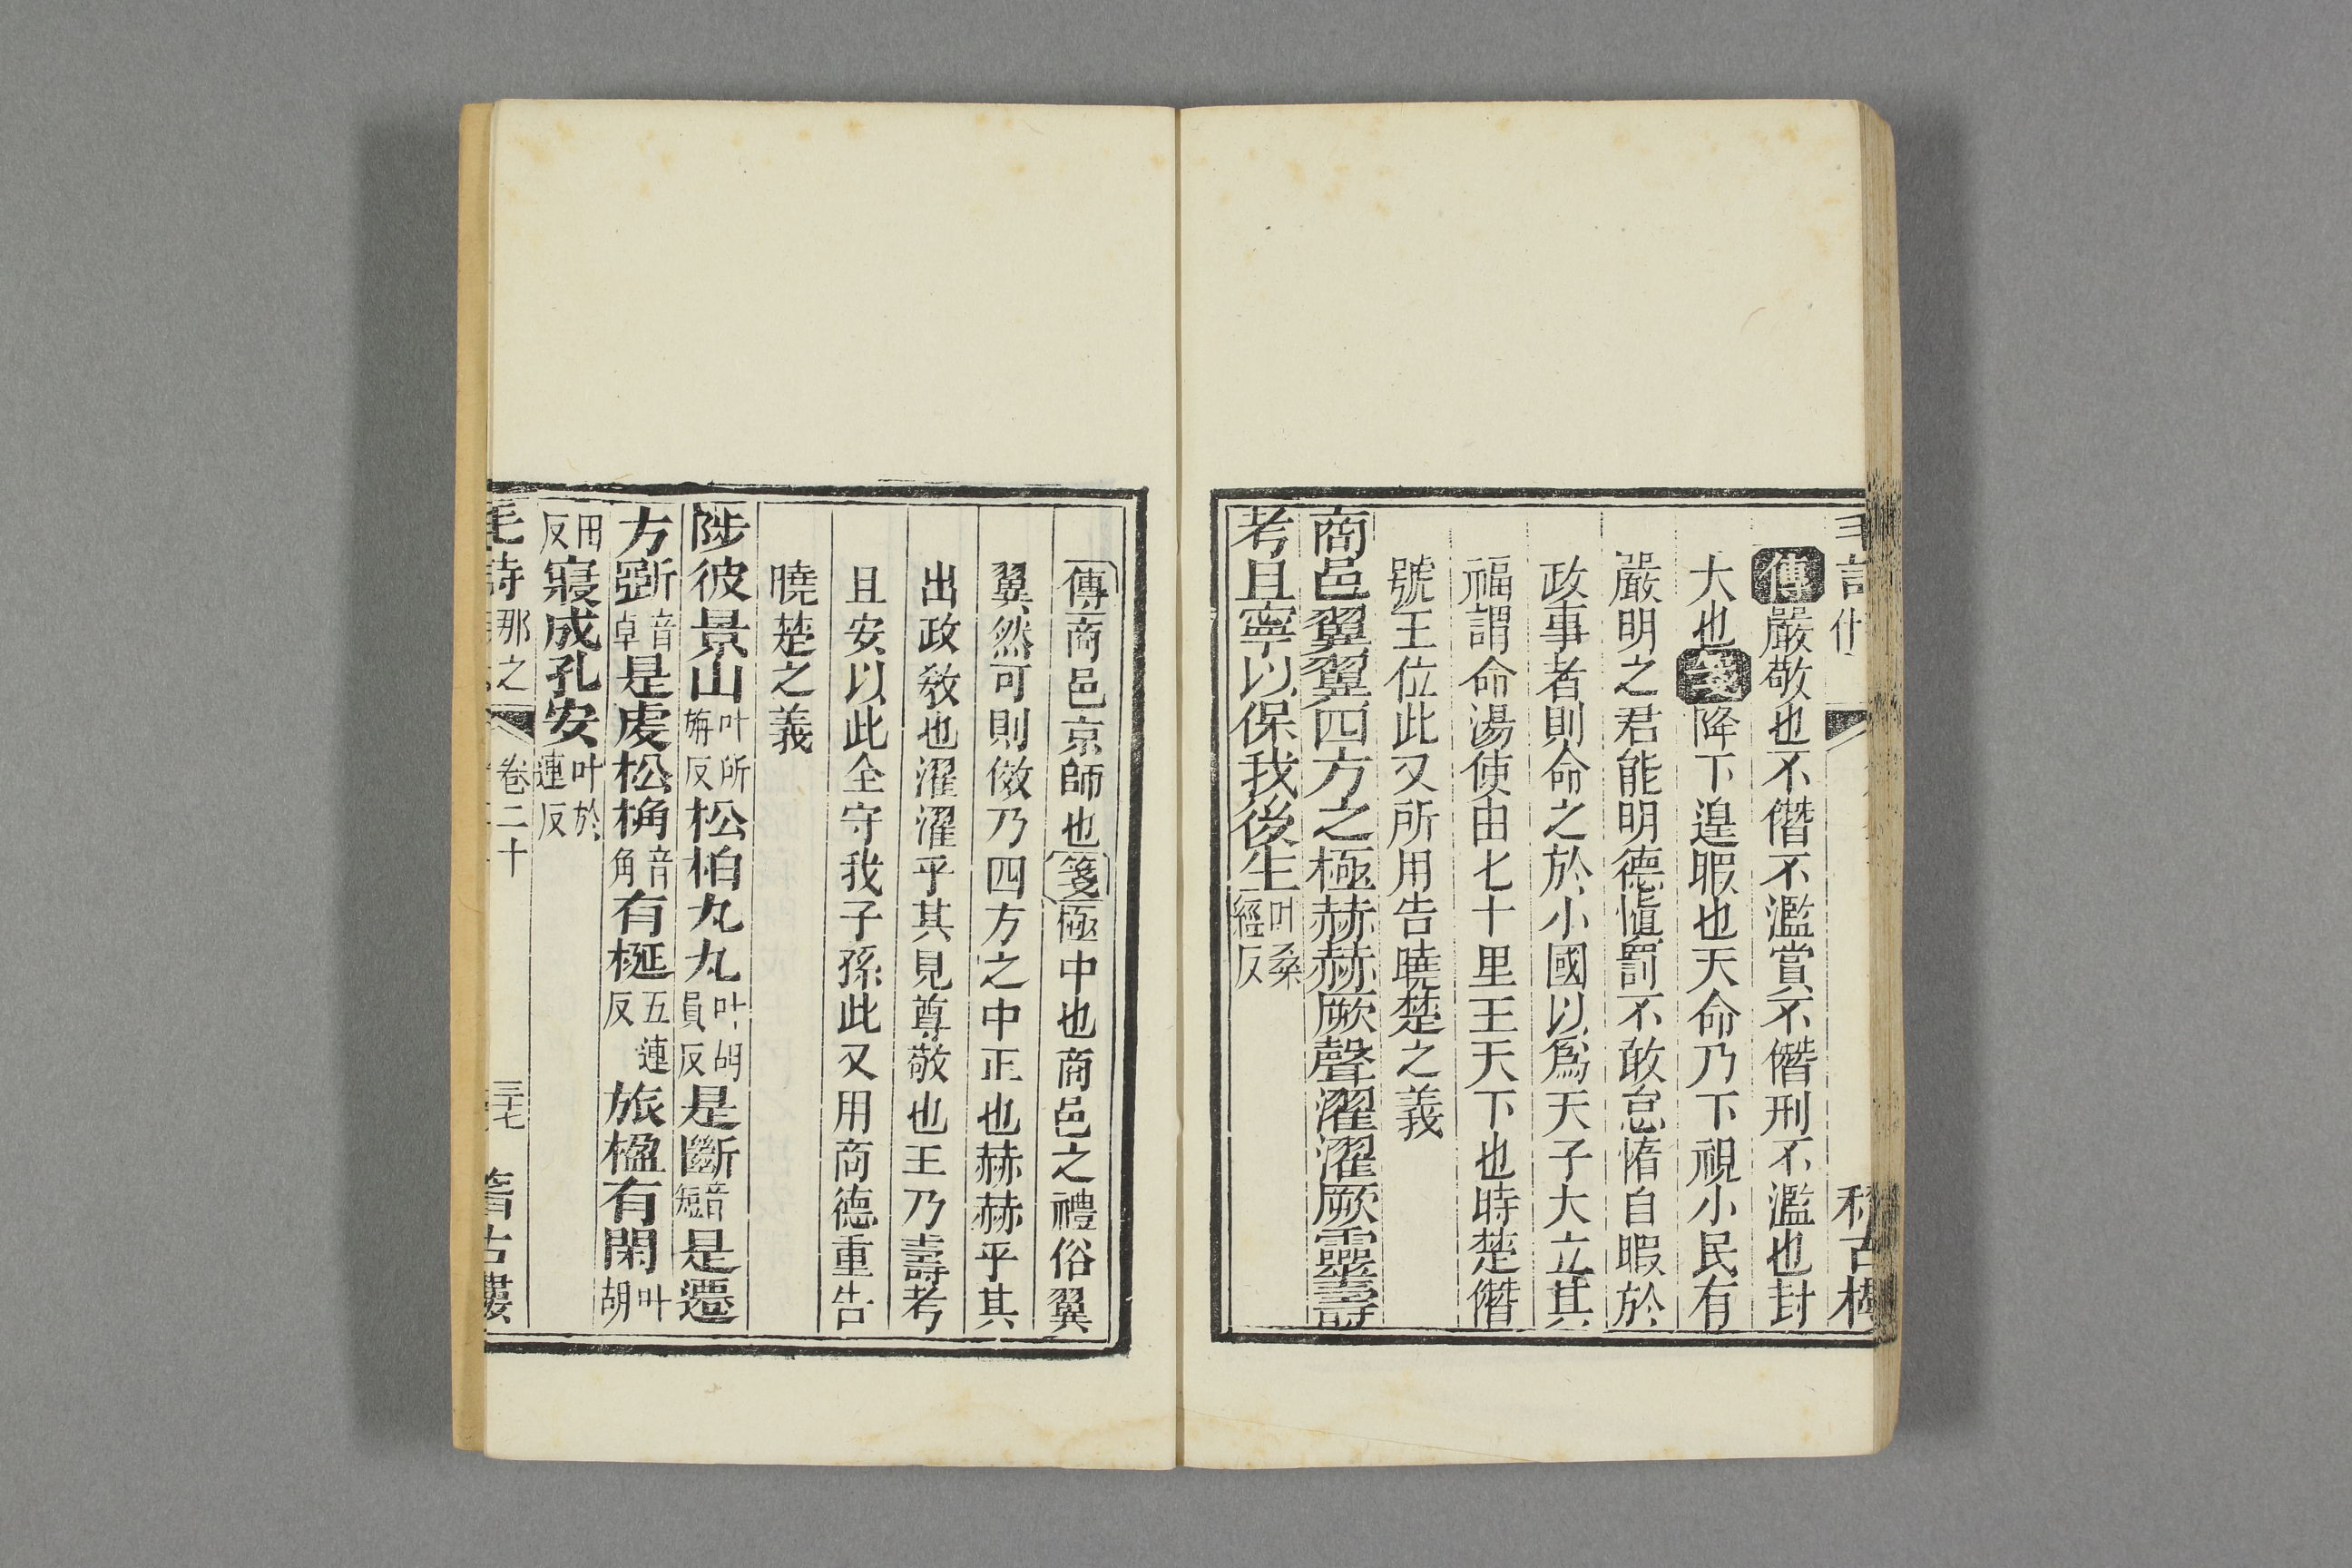 傳嚴敬也不僭不濫賞不僭刑不濫也封
大也箋降下遑暇也天命乃下視小民有
嚴明之君能明德愼罰不敢怠惰自暇於
政事者則命之於小國以爲天子大立其
福謂命湯使由七十里王天下也時楚僭
號王位此又所用告曉楚之義
商邑翼翼四方之極赫赫厥聲濯濯厥靈壽
考且寧以保我後生叶桑經反
傳商邑京師也箋極中也商邑之禮俗翼
翼然可則傚乃四方之中正也赫赫乎其
出政教也濯濯乎其見尊敬也王乃壽考
且安以此全守我子孫此又用商德重告
曉楚之義
陟彼景山叶所旃反松柏丸丸叶胡員反是斷音短是遷
方斲音卓是虔松桷音角有梴五連反旅楹有閑叶胡
田反寢成孔安叶於連反
毛詩那之 卷二十 三十七 稽古樓